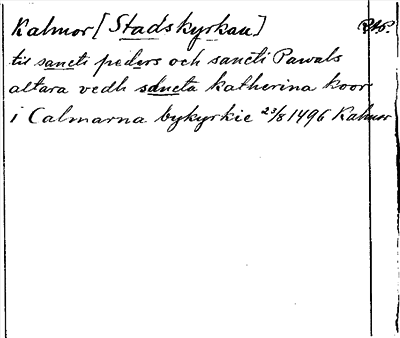 Kalmor [Stadskyrkan]
till sancti peders och sancti Pawals
altara vedh sancta katherina koor
i Calmarna bykyrkie 23/8 1496 Kalmor